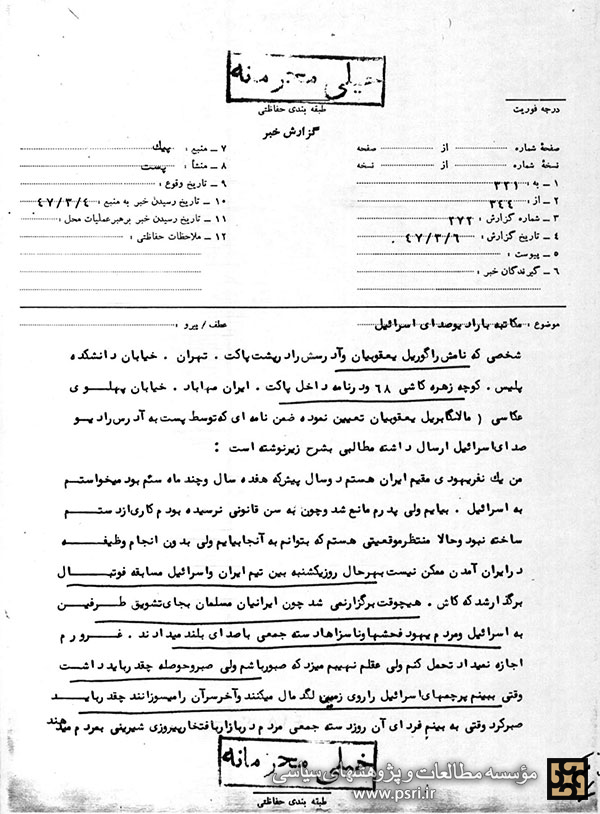 خیلی محرمانه
طبقه بندی حفاظتی
گزارش خبر
درجه فوریت
صفحهٔ شماره از صفحه
نسخهٔ شماره از نسخه
۱ ـ به : ۳۲۱
۲ ـ از : ۳۴۴
۳ ـ شماره گزارش : ۲۷۲
۴ ـ تاریخ گزارش : ۴۷/۳/۶
۵ ـ پیوست :
۶ ـ گیرندگان خبر :
۷ ـ منبع : پیک
۸ ـ منشأ : پست
۹ ـ تاریخ وقوع :
۱۰ ـ تاریخ رسیدن خبر به منبع : ۴۷/۳/۴
۱۱ ـ تاریخ رسیدن خبر برهبرعملیات محل :
۱۲ ـ ملاحظات حفاظتی :
موضوع : مکاتبه بارادیوصدای اسرائیل
عطف / پیرو :
شخصی که نامش راگوریل یعقوبیان وآدرسش رادرپشت پاکت . تهران . خیابان دانشکده
پلیس . کوچه زهره کاشی ۶۸ ودرنامه داخل پاکت . ایران مهاباد . خیابان پهلوی
عکاسی ( مالنگابریل یعقوبیان تعیین نموده ضمن نامه ای که توسط پست به آدرس رادیو
صدای اسرائیل ارسال داشته مطالبی بشرح زیرنوشته است :
من یک نفریهودی مقیم ایران هستم دوسال پیش که هفده سال وچند ماه سنم بود میخواستم
به اسرائیل . بیایم ولی پدرم مانع شد وچون به سن قانونی نرسیده بودم کاری ازدستم
ساخته نبود وحالا منتظرموقعیتی هستم که بتوانم به آنجابیایم ولی بدون انجام وظیفه
درایران آمدن ممکن نیست بهرحال روزیکشنبه بین تیم ایران واسرائیل مسابقه فوتبال
برگذارشد که کاش . هیچوقت برگزارنمی شد چون ایرانیان مسلمان بجای تشویق طرفین
به اسرائیل ومردم یهود فحشهاوناسزاهادسته جمعی باصدای بلند میدادند . غرورم
اجازه نمیداد تحمل کنم ولی عقلم نهیبم میزد که صبورباشم ولی صبروحوصله چقدرباید داشت
وقتی ببینم پرچمهای اسرائیل راروی زمین لگد مال میکنند وآخرسرآن رامیسوزانند چقدرباید
صبرکرد وقتی به بینم فردای آن روزدسته جمعی مردم دربازارباافتخارپیروزی شیرینی بمردم میدهند
خیلی محرمانه
طبقه بندی حفاظتی
مؤسسه مطالعات و پژوهشهای سیاسی
www.psri.ir